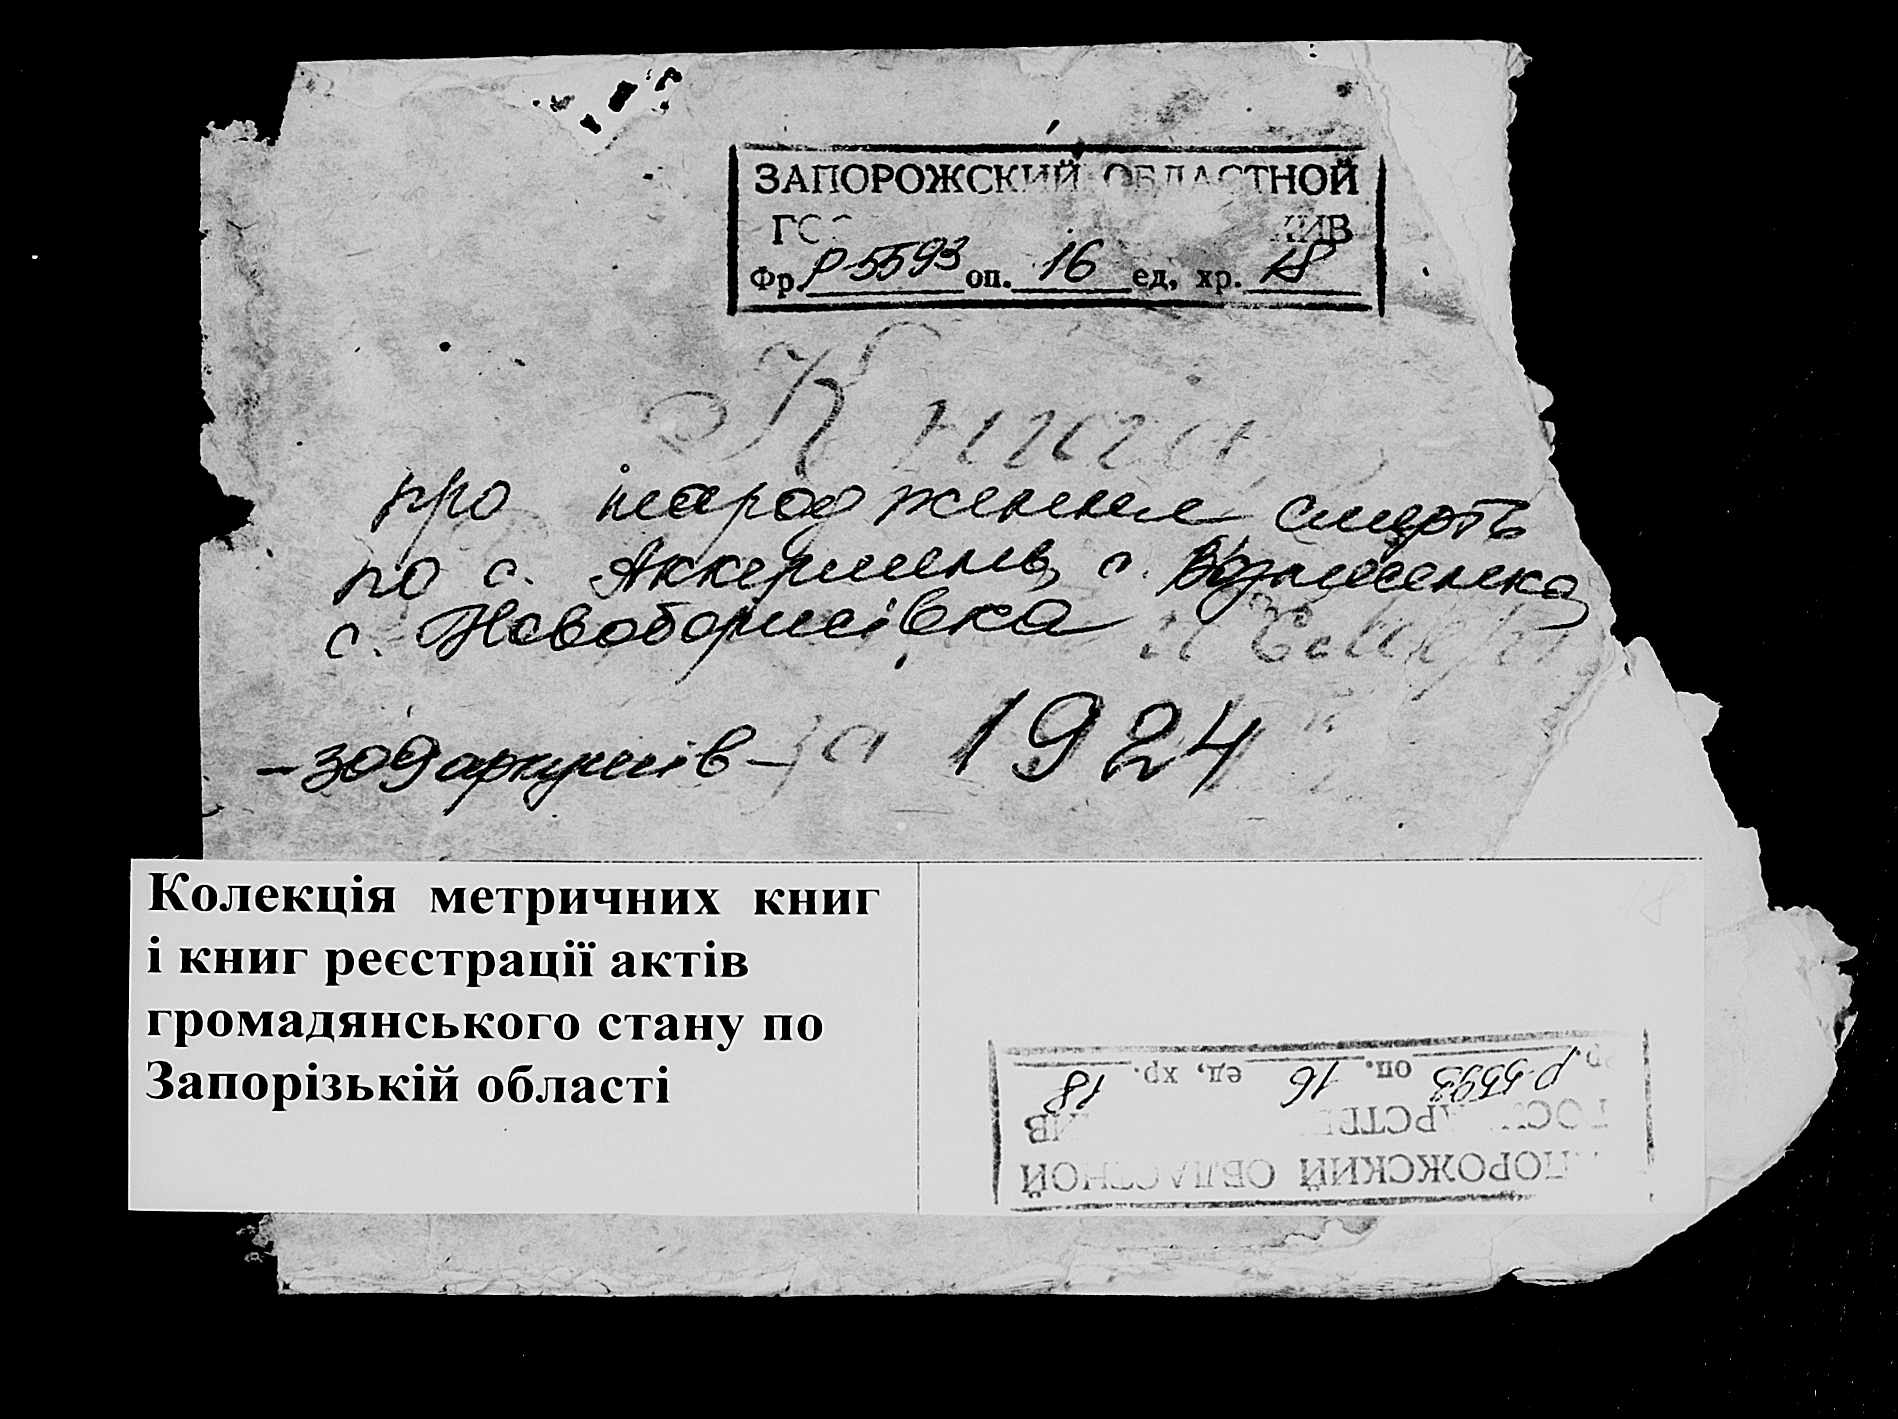 ЗАПОРОЖСКИЙ ОБЛАСТНОЙ
Фр. Р-5593 оп. 16 ед, хр. 18
Книга
про народження смерть
по с. Аккермень, с. Вознесенка
с. Новоборисівка и
- 309 аркушів - за 1924
Колекція метричних книг
і книг реєстрації актів
громадянського стану по
Запорізькій області
ОБЛАСТНОЙ
р-5593 оп. 16 ед, хр. 18